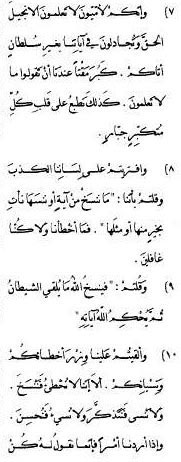 ٧) وإنكم لأميون لا تعلمون الإنجيل
الحق وتجادلون في آياتنا بغير سلطان
أتاكم . كبر مقتا عندنا أن تقولوا ما
لا تعلمون . كذلك نطبع على قلب كل
متكبر جبار .
٨) وافتريتم على لساننا الكذب
وقلتم بأننا : " ما ننسخ من آية أو ننسها نأت
بخير منها أو مثلها " . فما أخطأنا ولا كنا
غافلين .
٩) وقلتم : " فينسخ الله ما يلقي الشيطان
ثم يحكم الله آياته "
١٠) وألقيتم علينا وزر أخطائكم
ونسيانكم . ألا إننا لا نخطئ فننسخ .
ولا ننسى فنتذكر ولا نسيء فنحسن .
وإذا أردنا أمرا فإنما نقول له كن